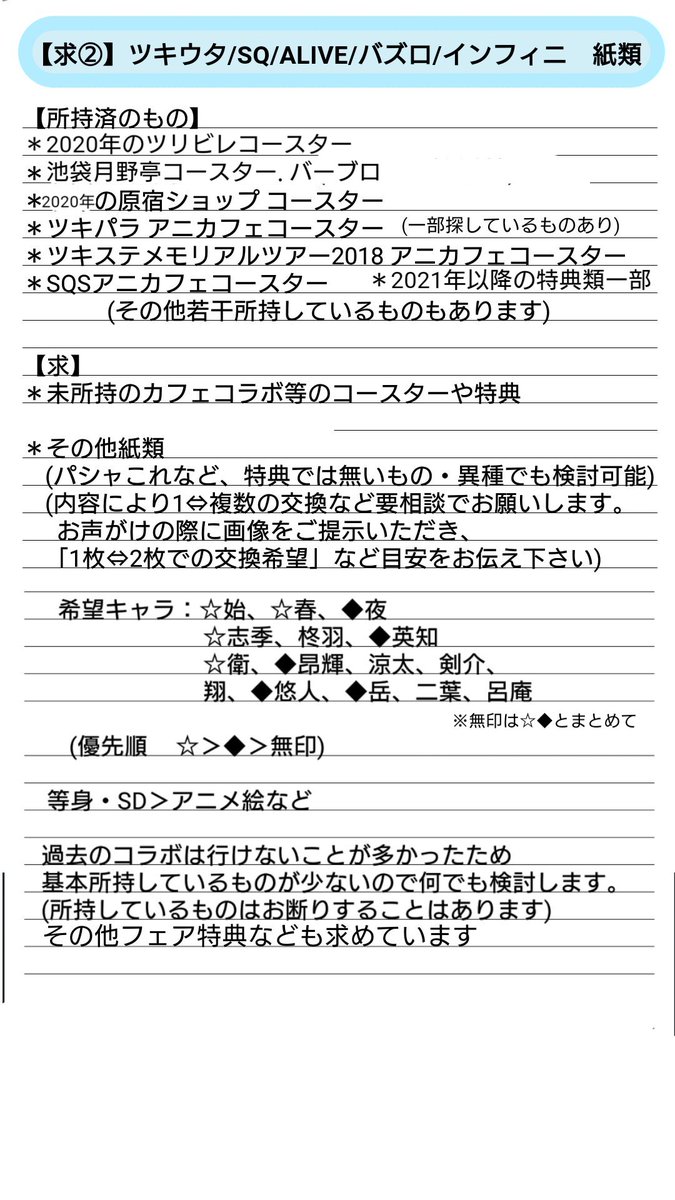 【求②】ツキウタ/SQ/ALIVE/バズロ/インフィニ　紙類
【所持済のもの】
＊2020年のツリビレコースター
＊池袋月野亭コースター. バーブロ
＊2020年の原宿ショップ コースター
＊ツキパラ アニカフェコースター (一部探しているものあり)
＊ツキステメモリアルツアー2018 アニカフェコースター
＊SQSアニカフェコースター　＊2021年以降の特典類一部
(その他若干所持しているものもあります)
【求】
＊未所持のカフェコラボ等のコースターや特典
＊その他紙類
(パシャこれなど、特典では無いもの・異種でも検討可能)
(内容により1⇔複数の交換など要相談でお願いします。
お声がけの際に画像をご提示いただき、
「1枚⇔2枚での交換希望」など目安をお伝え下さい)
希望キャラ：☆始、☆春、◆夜
☆志季、柊羽、◆英知
☆衛、◆昂輝、涼太、剣介、
翔、◆悠人、◆岳、二葉、呂庵
※無印は☆◆とまとめて
(優先順　☆＞◆＞無印)
等身・SD＞アニメ絵など
過去のコラボは行けないことが多かったため
基本所持しているものが少ないので何でも検討します。
(所持しているものはお断りすることはあります)
その他フェア特典なども求めています